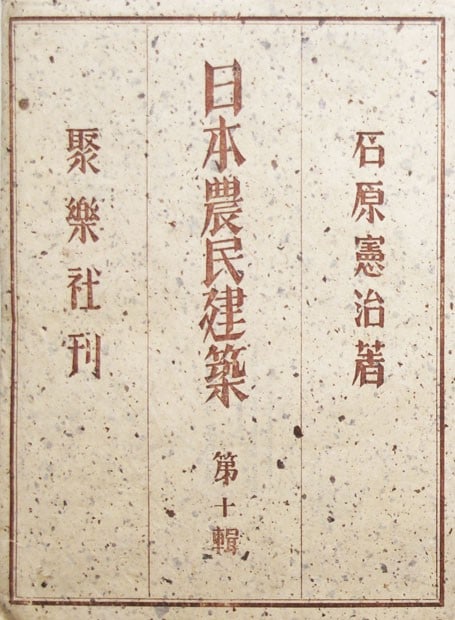 石原憲治著
日本農民建築 第十輯
聚樂社刊